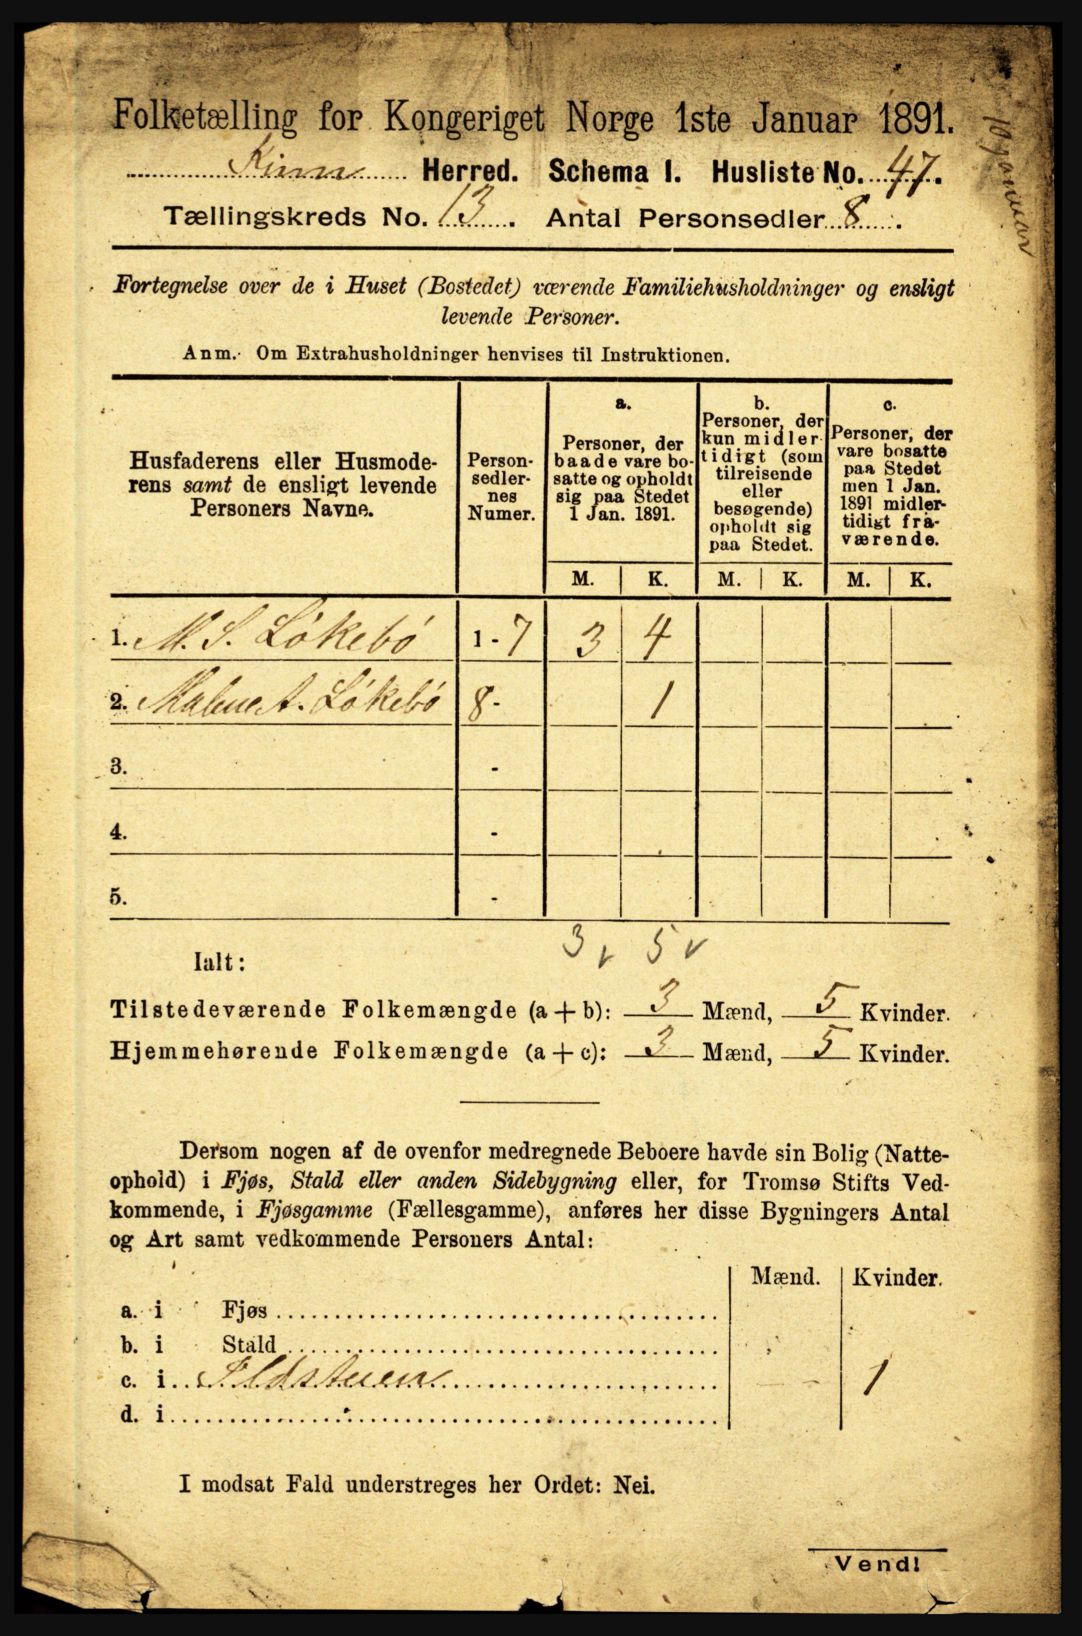 Folketælling for Kongeriget Norge 1ste Januar 1891.
Kinn Herred. Schema I. Husliste No. 47.
Tællingskreds No. 13. Antal Personsedler 8.
10 januar
Fortegnelse over de i Huset (Bostedet) værende Familiehusholdninger og ensligt
levende Personer.
Anm. Om Extrahusholdninger henvises til Instruktionen.
Husfaderens eller Husmode-
rens samt de ensligt levende
Personers Navne.
Person-
sedler-
nes
Numer.
a.
Personer, der
baade vare bo-
satte og opholdt
sig paa Stedet
1 Jan. 1891.
M. K.
b.
Personer, der
kun midler-
tidigt (som
tilreisende
eller
besøgende)
opholdt sig
paa Stedet.
M. K.
c.
Personer, der
vare bosatte
paa Stedet
men 1 Jan.
1891 midler-
tidigt fra-
værende.
M. K.
1. M. S. Løkebø 1-7 3 4
2. Malene A. Løkebø 8- 1
3. -
4. -
5. -
3 5
Ialt:
Tilstedeværende Folkemængde (a + b): 3 Mænd, 5 Kvinder.
Hjemmehørende Folkemængde (a + c): 3 Mænd, 5 Kvinder.
Dersom nogen af de ovenfor medregnede Beboere havde sin Bolig (Natte-
ophold) i Fjøs, Stald eller anden Sidebygning eller, for Tromsø Stifts Ved-
kommende, i Fjøsgamme (Fællesgamme), anføres her disse Bygningers Antal
og Art samt vedkommende Personers Antal:
Mænd. Kvinder.
a. i Fjøs
b. i Stald
c. i Ildstuen — 1
d. i
I modsat Fald understreges her Ordet: Nei.
Vend!